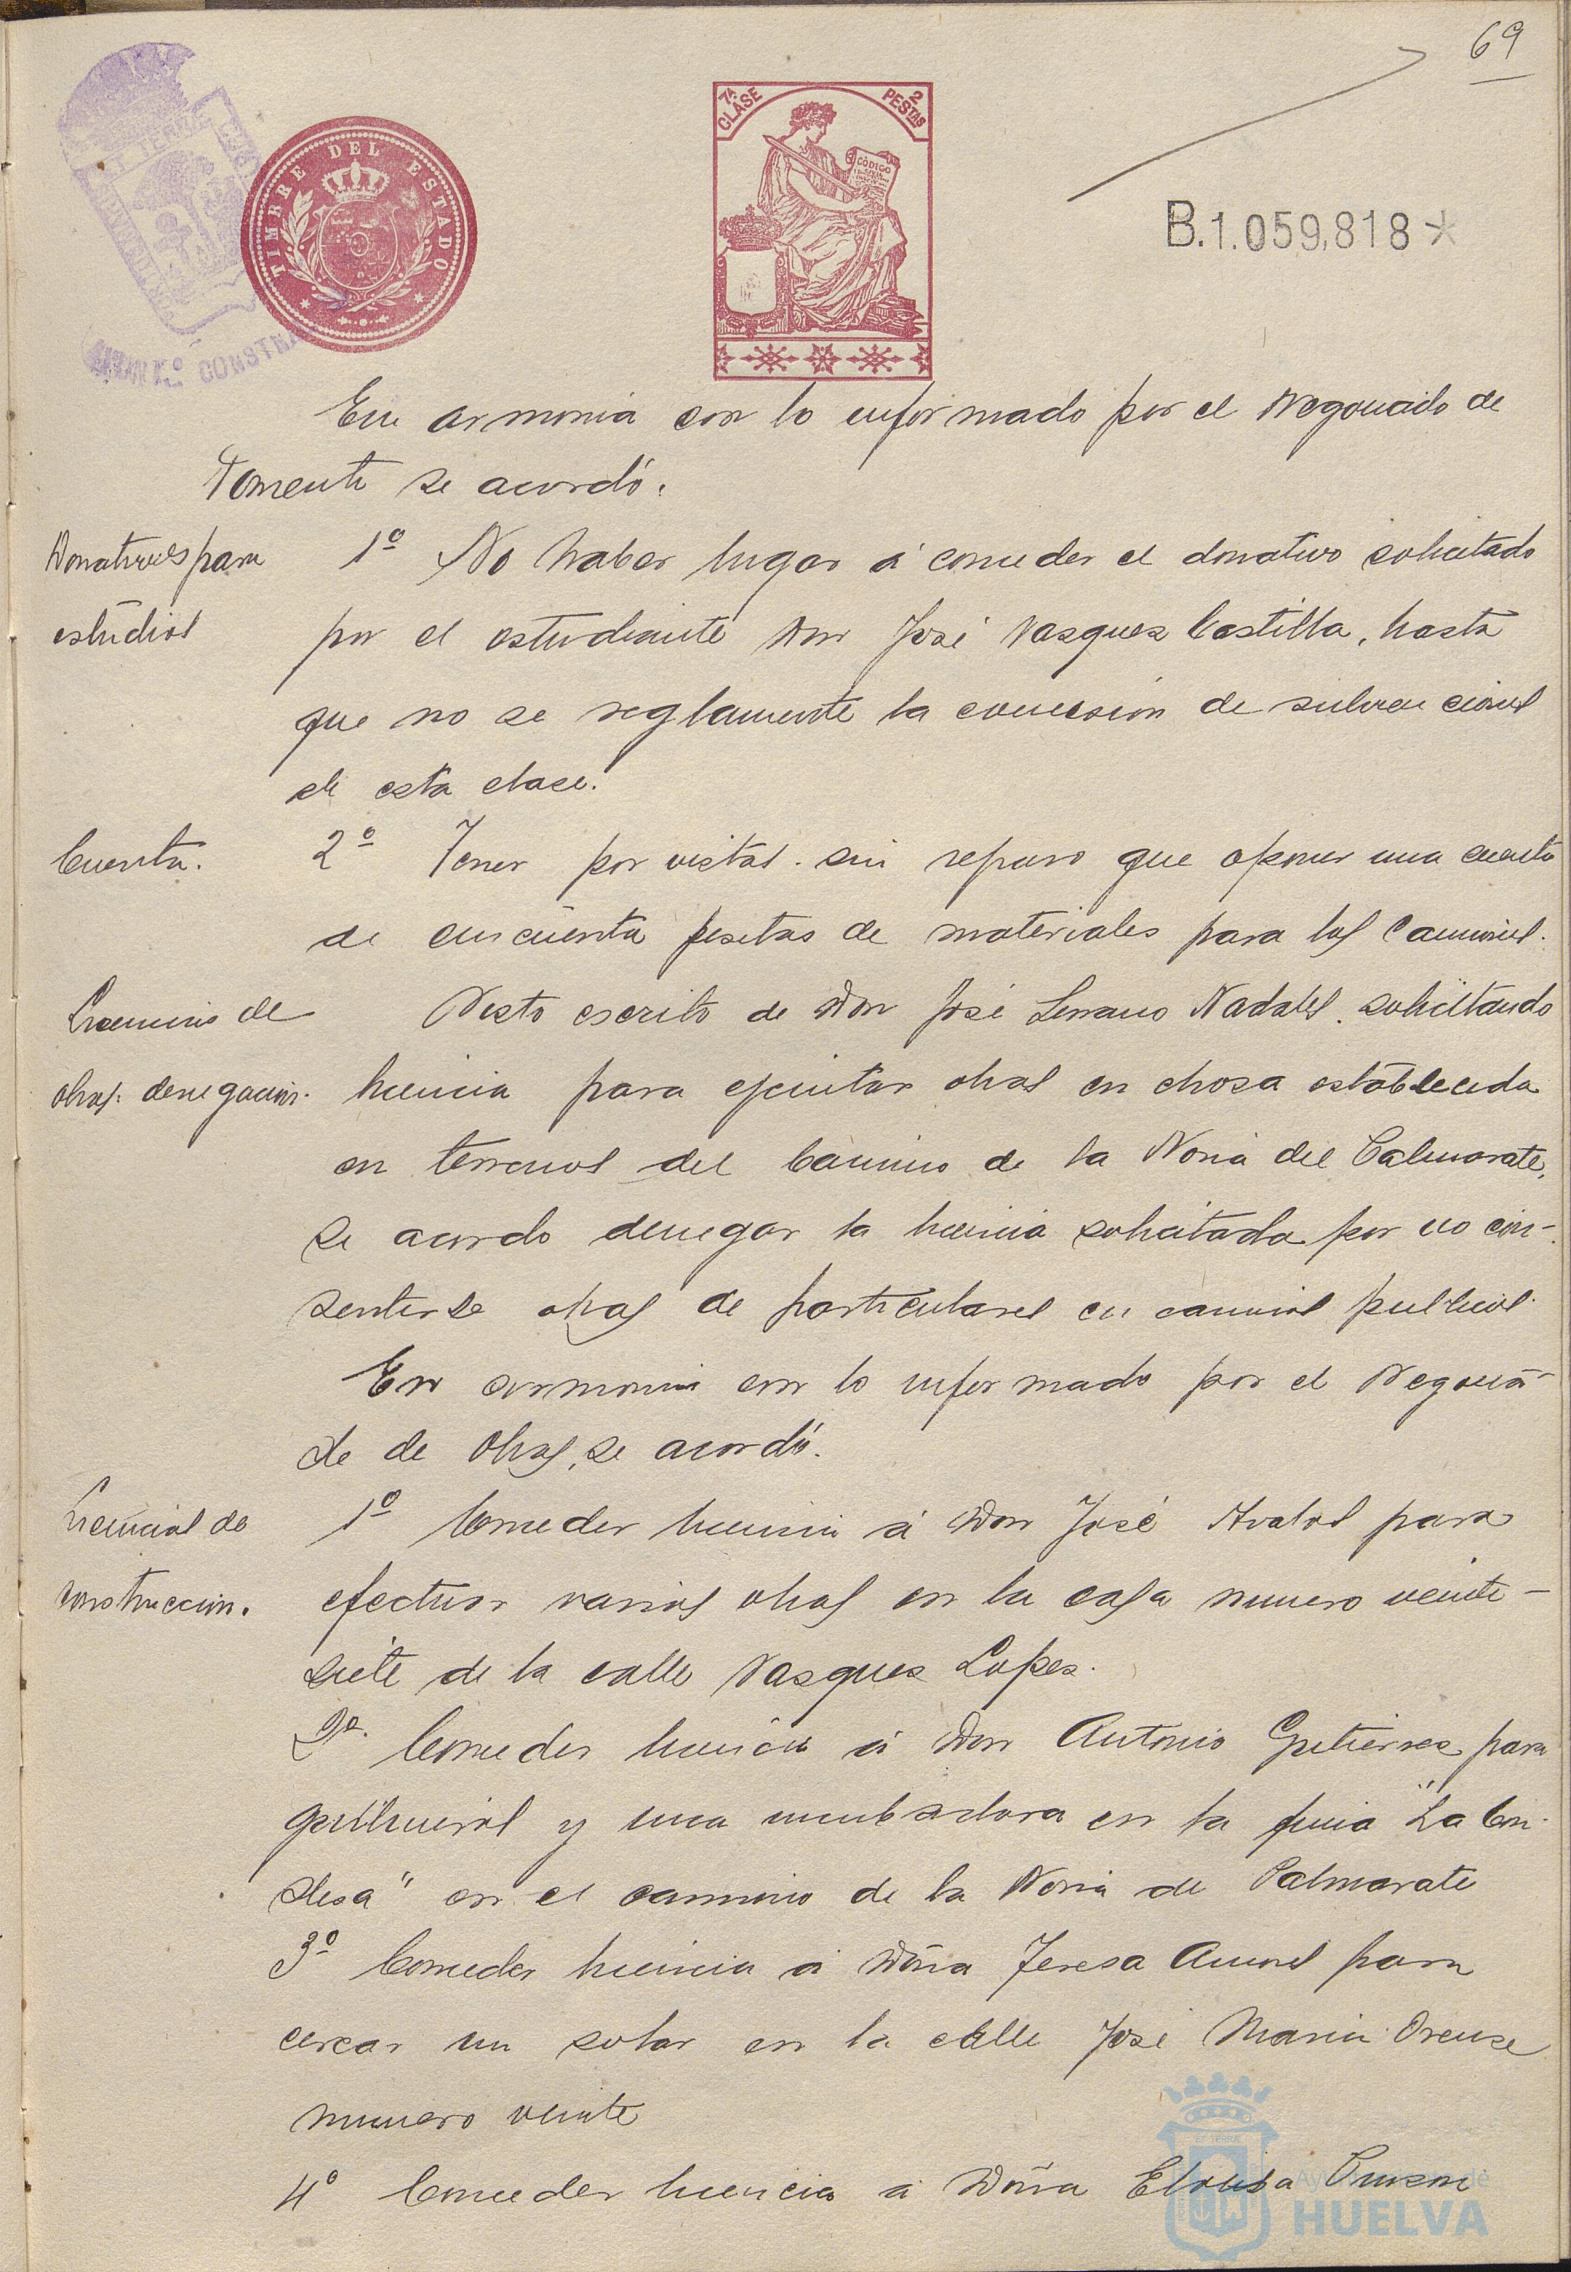 69
7ª CLASE
2 PESTAS
CÓDIGO
TIMBRE DEL ESTADO
B.1.059,818*
En armonia con lo informado por el Negociado de
Fomento se acordó.
Donativos para
estudios
1º No haber lugar á conceder el donativo solicitado
por el estudiante Don José Vasquez Castilla, hasta
que no se reglamente la concesión de subvenciones
de esta clase.
Cuenta.
2º Tener por vistas sin reparo que oponer una cuenta
de cincuenta pesetas de materiales para los Camiones.
Licencias de
obras. denegación.
Visto escrito de Don José Serrano Nadales. solicitando
licencia para ejecutar obras en choza establecida
en terrenos del Camino de la Noria del Calmarate,
se acordo denegar la licencia solicitada por no con-
sentirse obras de particulares en caminos publicos.
En armonia con lo informado por el Negocia-
do de Obras, se acordó.
Licencias de
construccion.
1º Conceder licencia á Don José Avalos para
efectuar varias obras en la casa numero veinte-
siete de la calle Vasquez Lopez.
2º. Conceder licencia á Don Antonio Gutierrez para
gallineros y una incubadora en la finca "La Con-
desa" en el camino de la Noria de Palmarate
3º Conceder licencia á Doña Teresa Amores para
cercar un solar en la calle José Maria Orense
numero veinte
4º Conceder licencia á Doña Eloisa Pinzon
Ayuntamiento de
HUELVA